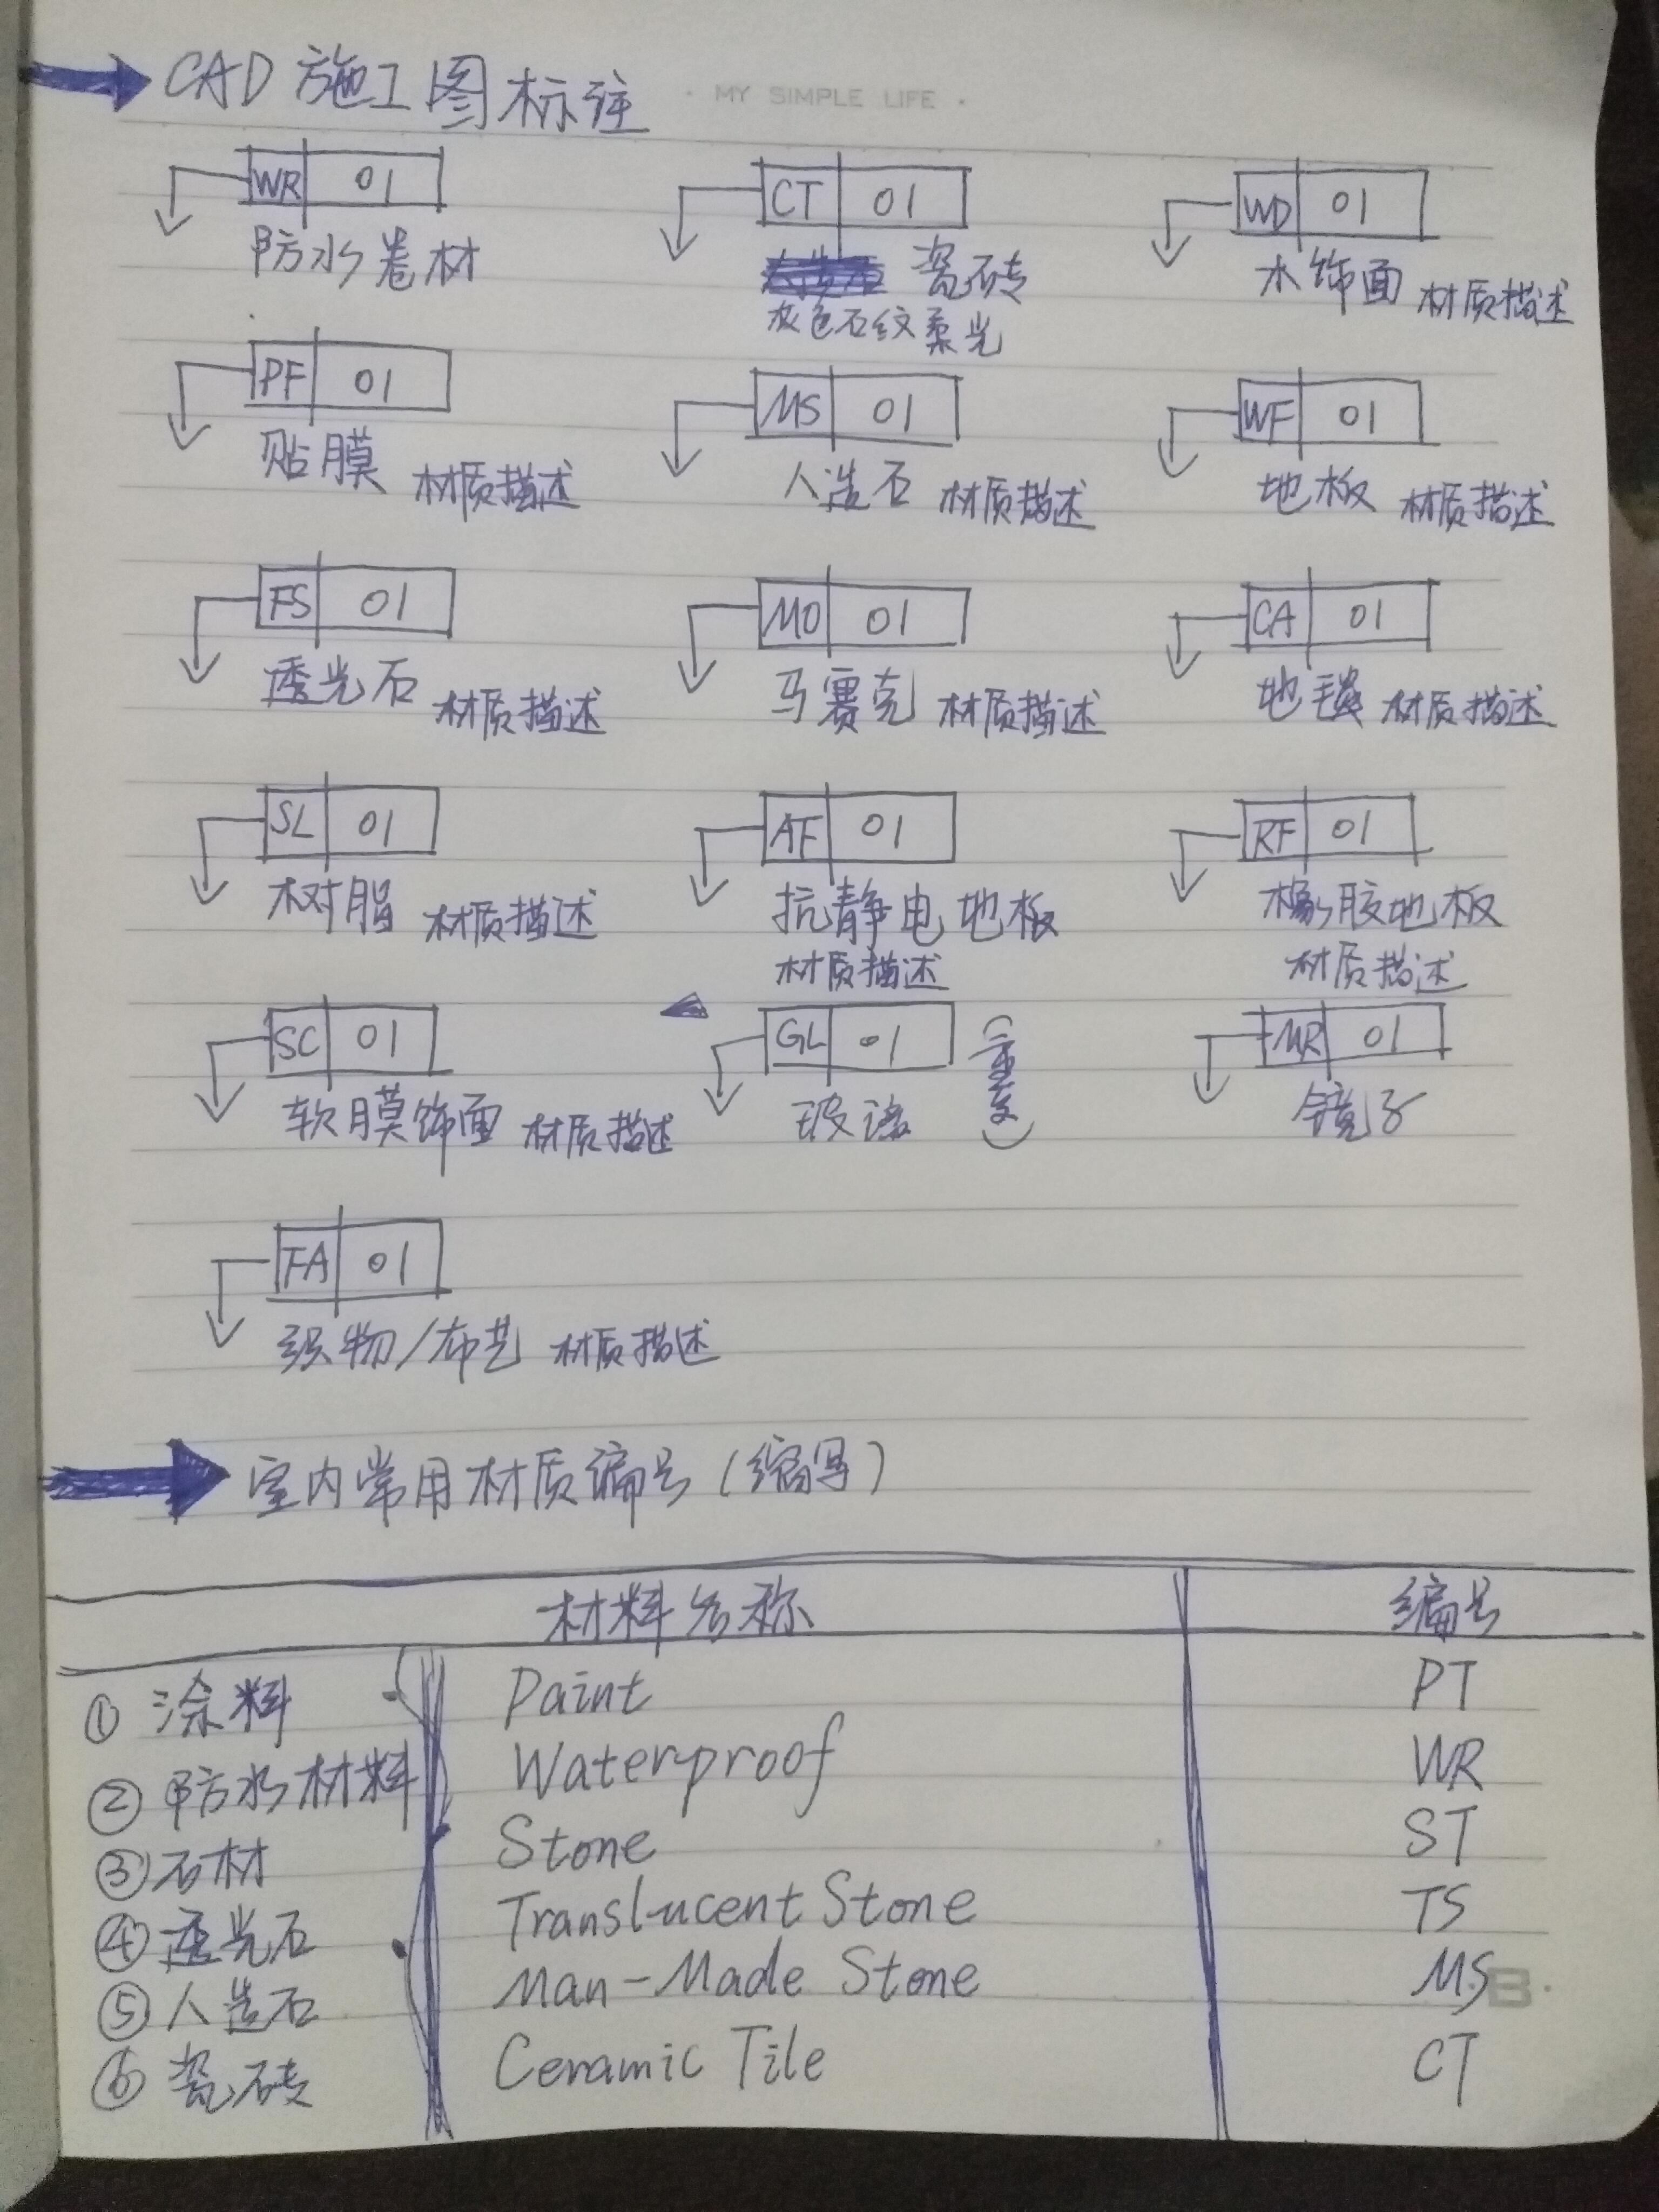 CAD 施工图标注
· MY SIMPLE LIFE ·
WR 01 CT 01 WD 01
防水卷材 瓷砖 木饰面 材质描述
灰色石纹柔光
PF 01 MS 01 WF 01
贴膜 材质描述 人造石 材质描述 地板 材质描述
FS 01 MO 01 CA 01
透光石 材质描述 马赛克 材质描述 地毯 材质描述
SL 01 AF 01 RF 01
树脂 材质描述 抗静电地板 橡胶地板
材质描述 材质描述
SC 01 GL 01 (重要) MR 01
软膜饰面 材质描述 玻璃 镜子
FA 01
织物/布艺 材质描述
室内常用材质编号(缩写)
材料名称 编号
① 涂料 Paint PT
② 防水材料 Waterproof WR
③ 石材 Stone ST
④ 透光石 Translucent Stone TS
⑤ 人造石 Man-Made Stone MS
⑥ 瓷砖 Ceramic Tile CT